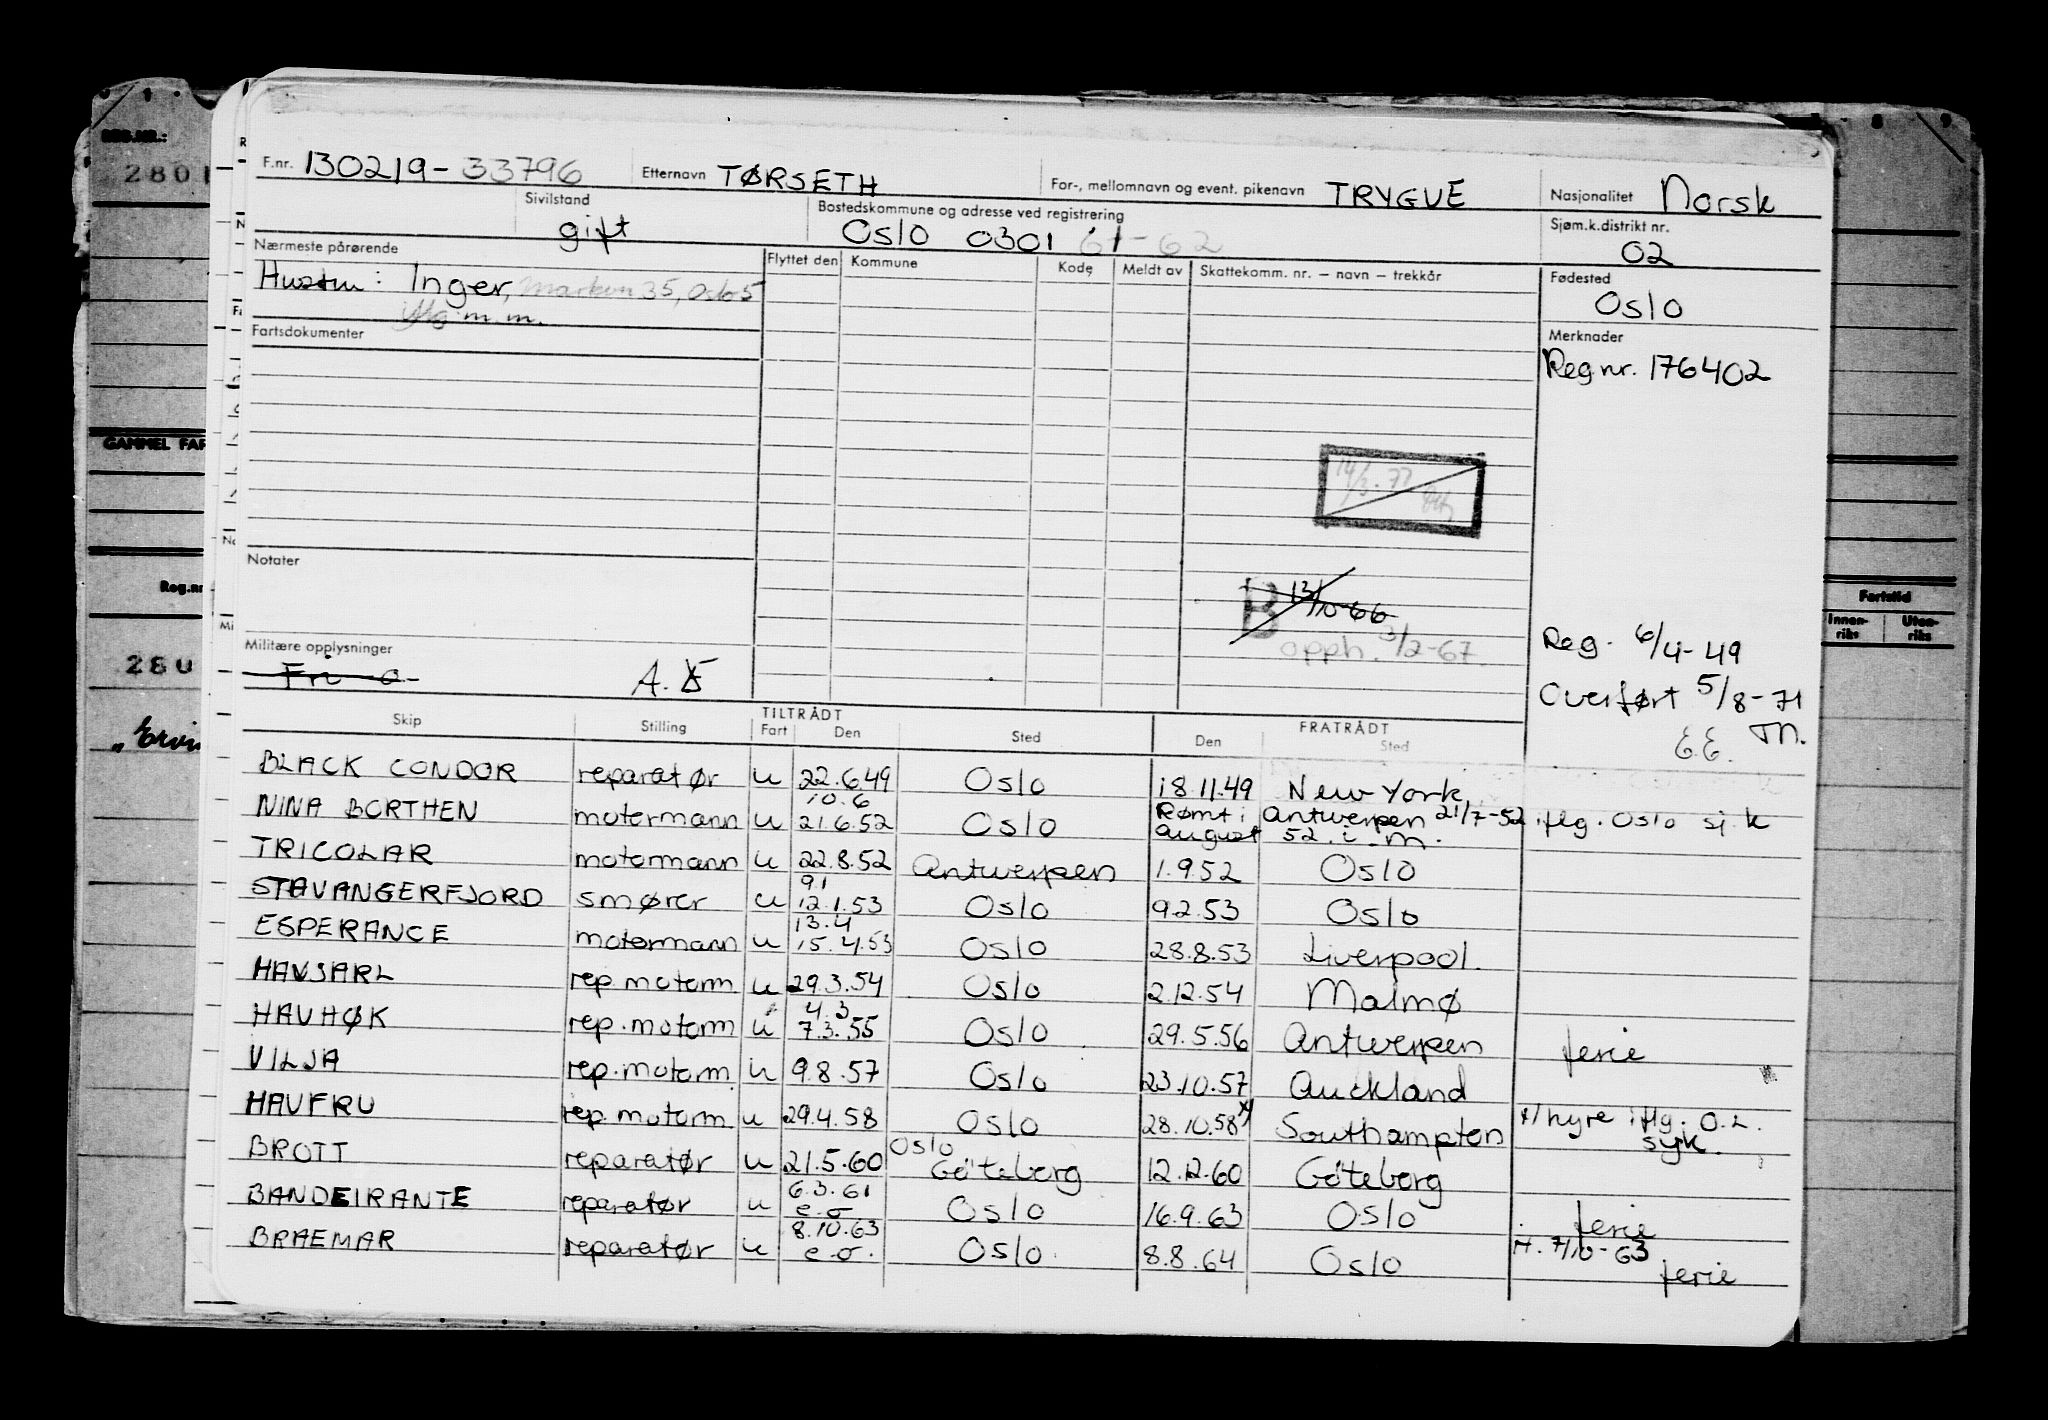 REG.NR.:
2801
GAMMEL FAR
Reg.nr
280
"Ervi
F.nr. 130219-33796 Etternavn TØRSETH For-, mellomnavn og event. pikenavn TRYGVE Nasjonalitet Norsk
Sivilstand gift Bostedskommune og adresse ved registrering Oslo 0301 61-62 Sjøm.k.distrikt nr. 02
Nærmeste pårørende Flyttet den Kommune Kode Meldt av Skattekomm. nr. – navn – trekkår Fødested
Hustru: Inger, Marken 35, Oslo 5 Oslo
m.m.
Fartsdokumenter Merknader
Reg nr. 176402
14/3-77
Notater
B 13/10-66
opph. 3/2-67.
Reg. 6/4-49
Militære opplysninger
Fri a A.F
Overført 5/8-71
E.E. M.
Skip Stilling TILTRÅDT Fart Den Sted FRATRÅDT Den Sted
BLACK CONDOR reparatør u 22.6.49 Oslo 18.11.49 New York
NINA BORTHEN motormann u 10.6 21.6.52 Oslo Rømt i august Antwerpen 21/7-52 iflg. Oslo sj.k 52. i. M.
TRICOLAR motormann u 22.8.52 Antwerpen 1.9.52 Oslo
STAVANGERFJORD smører u 9.1 12.1.53 Oslo 9.2.53 Oslo
ESPERANCE motormann u 13.4 15.4.53 Oslo 28.8.53 Liverpool.
HAVJARL rep. motorm u 29.3.54 Oslo 2.12.54 Malmø
HAVHØK rep. motorm u 4.3 7.3.55 Oslo 29.5.56 Antwerpen ferie
VILJA rep. motorm. u 9.8.57 Oslo 23.10.57 Auckland
HAVFRU rep. motorm u 29.4.58 Oslo 28.10.58 x) Southampton x/ hyre iflg. O.L. syk.
BROTT reparatør u 21.5.60 Oslo Göteborg 12.12.60 Göteborg
BANDEIRANTE reparatør u 6.3.61 e.o Oslo 16.9.63 Oslo ferie
BRAEMAR reparatør u 8.10.63 e.o. Oslo 8.8.64 Oslo H. 7/10-63 ferie
Fartstid
Innen-riks Uten-riks